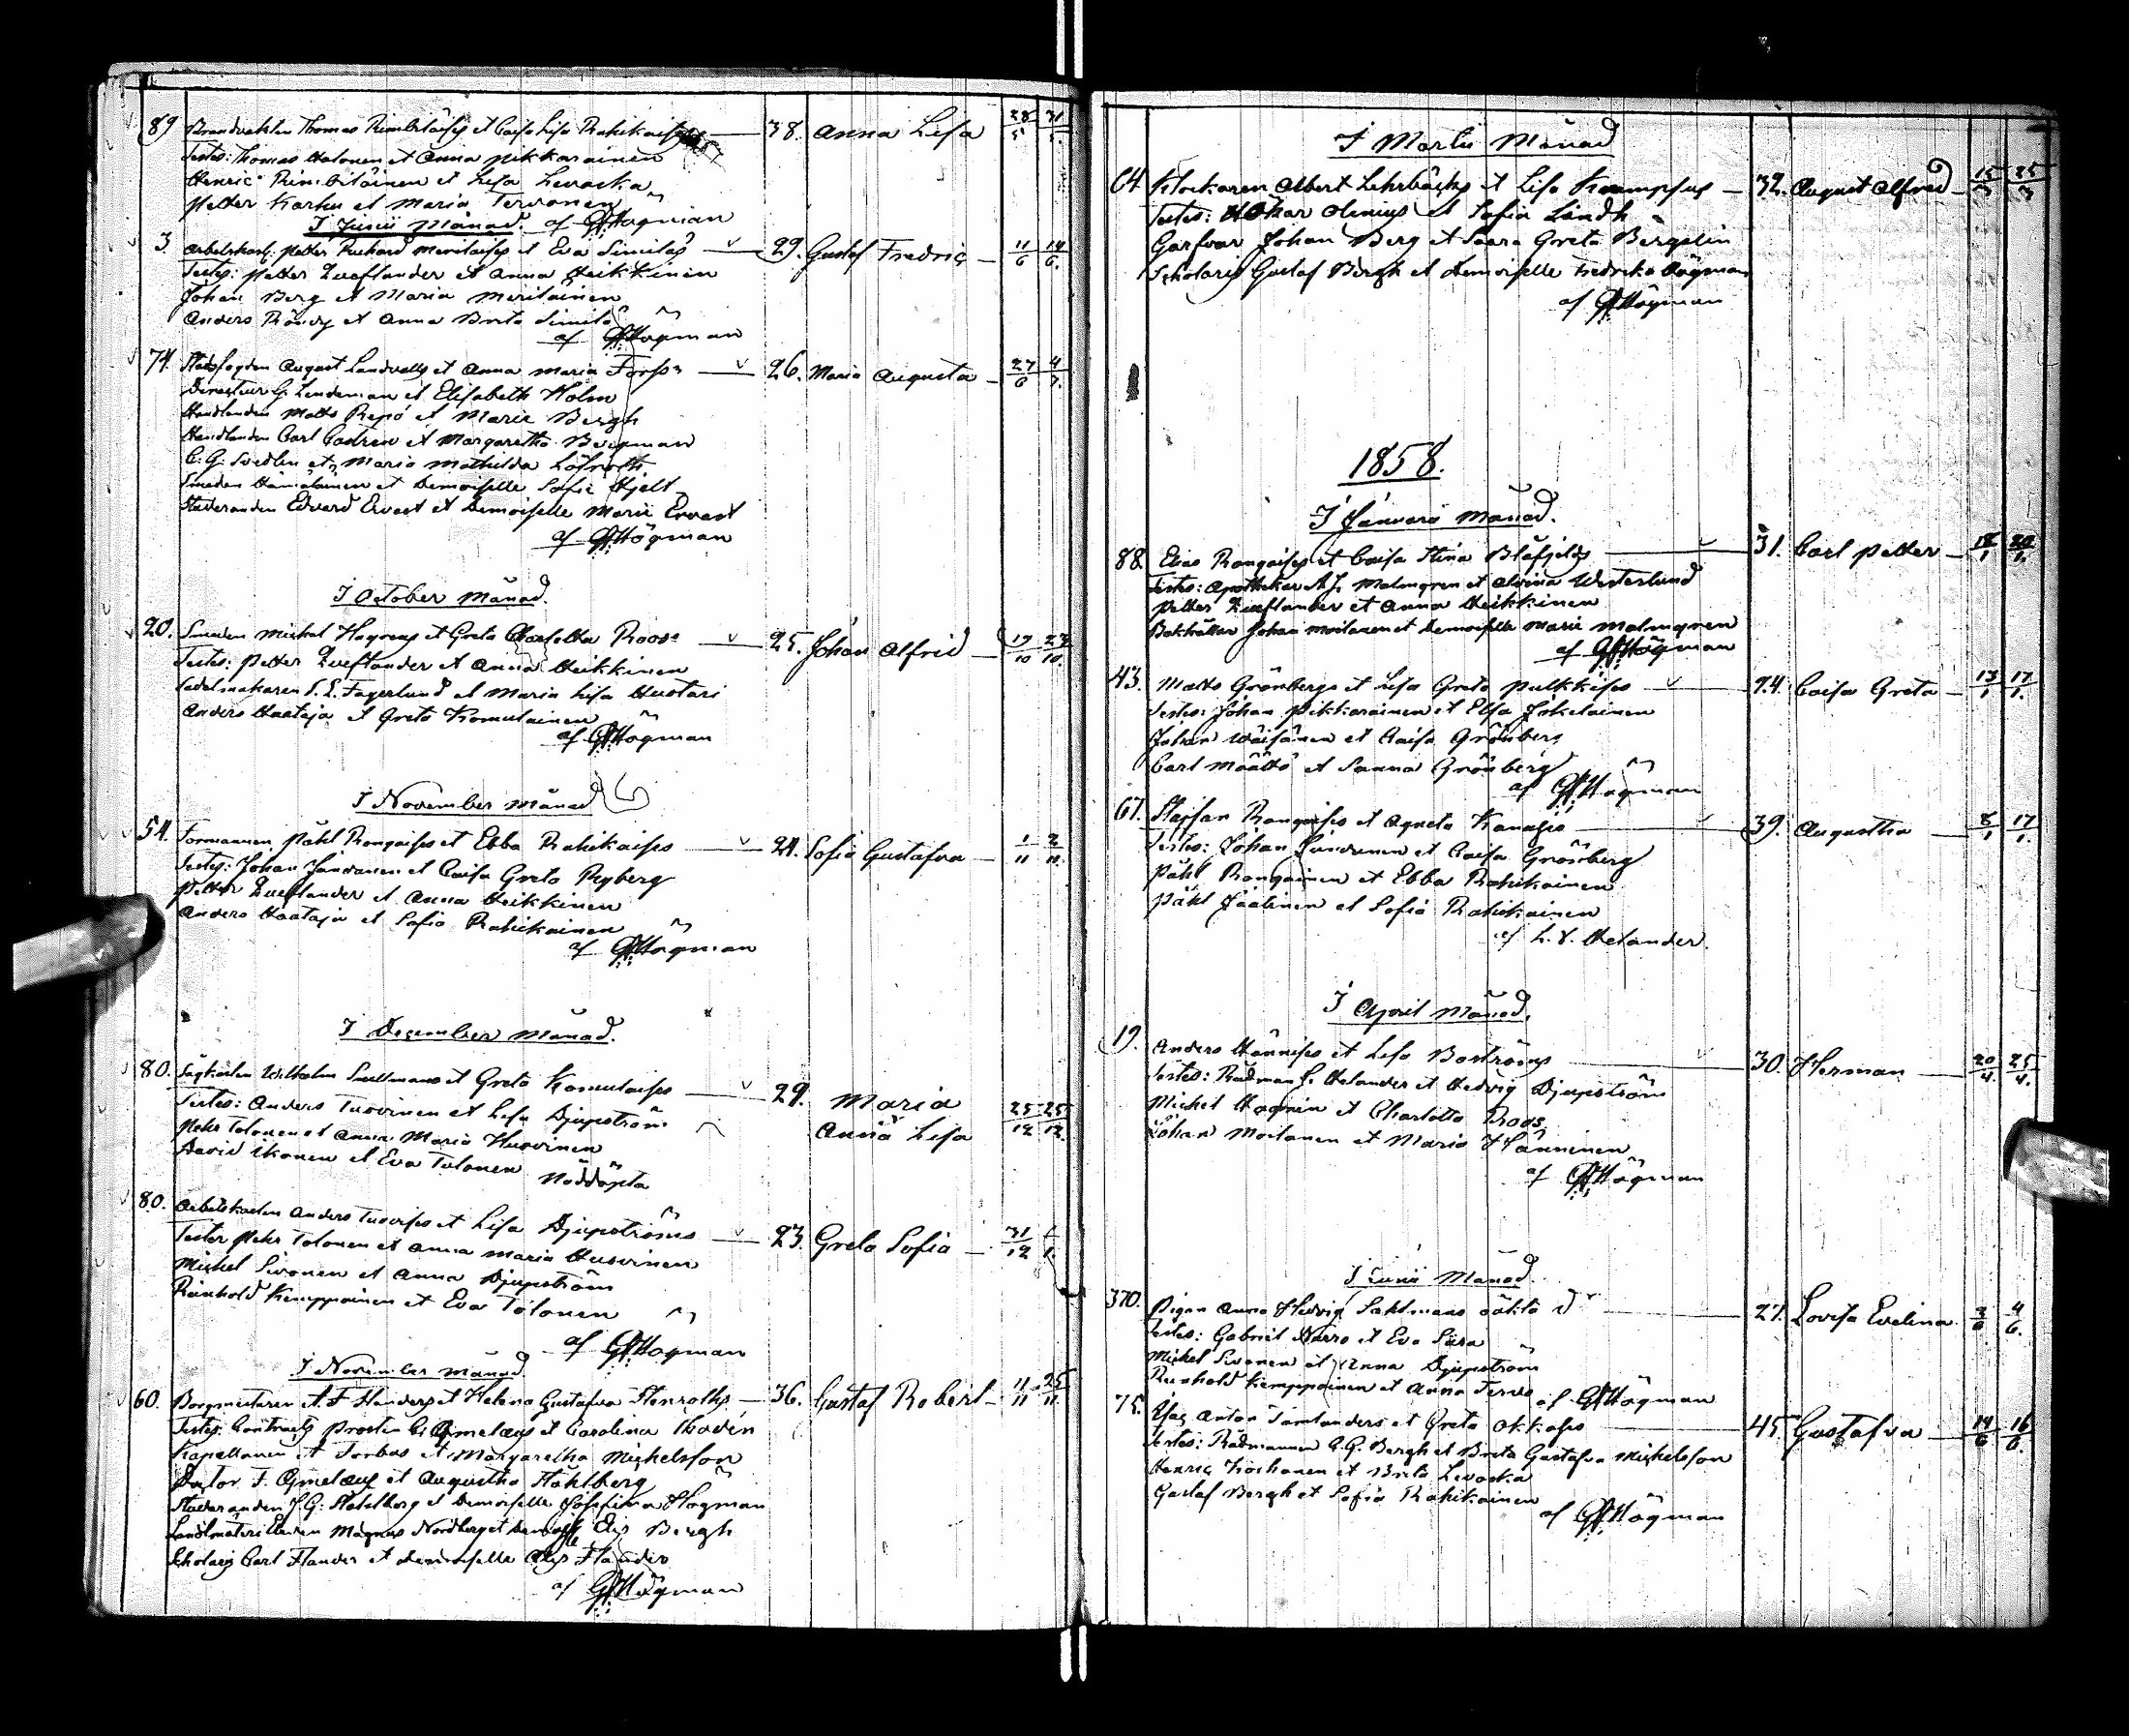 89 Brandvakten Thomas Rimbiläises et Caisa Lisa Rahikaises — 38. Anna Lisa 28/5 31/5.
Testes: Thomas Halonen et Anna Pikkarainen
Henric Rimbiläinen et Lisa Levaska
Petter Karhu et Maria Tervonen
af GHHögman
I Junii Månad.
3. Arbetskarl: Petter Rickard Meriläises et Eva Similäs — 29. Gustaf Fredric — 11/6 14/6.
Testes: Petter Zueflander et Anna Heikkinen
Johan Berg et Maria Meriläinen
Anders Röndy et Anna Brita Similä
af GHHögman
74. Stadsfogden August Landvalls et Anna Maria Forss — 26. Maria Augusta — 27/6 4/7.
Directeur G. Lindeman et Elisabeth Holm
Handlanden Matts Repo et Marie Bergh
Handlanden Carl Castren et Margaretha Bergman
C. G. Svedlin et Maria Mathilda Löfroth
Smeden Hämäläinen et Demoiselle Sofie Hjelt
Studeranden Edvard Ervast et Demoiselle Marie Ervast
af GHHögman
I October månad.
20. Smeden Michel Hagrens et Greta Charlotta Roos — 25. Johan Alfrid — 17/10 23/10.
Testes: Petter Zueflander et Anna Heikkinen
Sadelmakaren S. E. Fagerlund et Maria Lisa Huotari
Anders Haataja et Greta Komulainen
af GHHögman
I November månad
54. Formannen Påhl Rongaises et Ebba Rahikaises — 24. Sofia Gustafva — 1/11 2/11.
Testes: Johan Jänvanen et Caisa Greta Ryberg
Petter Zueflander et Anna Heikkinen
Anders Haataja et Sofia Rahikainen
af GHHögman
I December månad.
80. Sågkarlen Wilhelm Snellmans et Greta Komulaises — 29. Maria
Anna Lisa 25/12 25/12.
Testes: Anders Tuovinen et Lisa Djupström
Pehr Tolonen et Anna Maria Huovinen
David Ikonen et Eva Tolonen Nöddöpta
80. Arbetskarlen Anders Tuovises et Lisa Djupströms — 23. Greta Sofia — 31/12 1/1.
Testes Pehr Tolonen et Anna Maria Huovinen
Michel Sivonen et Anna Djupström
Reinhold Kemppainen et Eva Tolonen
af GHHögman
I November månad
60. Borgmästaren A. F. Flanders et Helena Gustafva Stenroths — 36. Gustaf Robert — 11/11 25/11.
Testes: Contracts Prosten C. Gymelaeus et Carolina Thodén
Kapellanen A. Forbus et Margaretha Michelsson
Doctor F. Gymelaeus et Augustha Ståhlberg
Studeranden J. G. Ståhlberg et Demoiselle Josefina Högman
Landtmäteri Eleven Magnus Nordberg et Demoiselle Elis Bergh
Scholaris Carl Flander et Demoiselle Elis Flander
af GHHögman
I Martii Månad
64 Klockaren Albert Lehrbäcks et Lisa Kræmpfus — 32. August Alfred — 15/3 25/3
Testes: Oskar Olenius et Sofia Lindh
Garfvar Johan Berg et Saara Greta Bergelin
Scholaris Gustaf Bergh et Demoiselle Fredrika Högman
af GHHögman
1858.
I Januarii månad.
88. Elias Rongaises et Caisa Stina Blåfjelds — 31. Carl Petter — 18/1 20/1.
Testes: Apothekar A. J. Malmgren et Alvina Westerlund
Petter Zueflander et Anna Heikkinen
Bokhållar Johan Moilanen et Demoiselle Marie Malmgren
af GHHögman
43. Matts Grönbergs et Lisa Greta Pulkkises — 24. Caisa Greta — 13/1 17/1.
Testes: Johan Pikkarainen et Elsa Jokelainen
Johan Wäisänen et Caisa Grönberg
Carl Määttä et Sanna Grönberg
af GHHögman
67. Staffan Rongaises et Agneta Kanases — 39. Augustha — 8/1 17/1.
Testes: Johan Junvanen et Caisa Grönberg
Påhl Rongainen et Ebba Rahikainen
Påhl Jäälinen et Sofia Rahikainen
af L. V. Helander.
I April månad.
19. Anders Hännises et Lisa Boströms — 30. Herman — 20/4. 25/4.
Testes: Rådman J. Helander et Hedvig Djupström
Michel Hagrén et Charlotta Roos
Johan Moilanen et Maria Hänninen
af GHHögman
I Junii Månad.
370. Pigan Anna Hedvig Sahlmans oäkta d — 27. Lovisa Evelina 3/6 4/6.
Testes: Gabriel Narro et Eva Sära
Michel Sivonen et Anna Djupström
Reinhold Kemppainen et Anna Tervo af GHHögman
75. Anton Tamlanders et Greta Okkases — 45. Gustafva — 14/6 16/6.
Testes: Rådmannen C. G. Bergh et Brita Gustafva Michelsson
Henric Korhonen et Brita Levaska
Gustaf Bergh et Sofia Rahikainen
af GHHögman